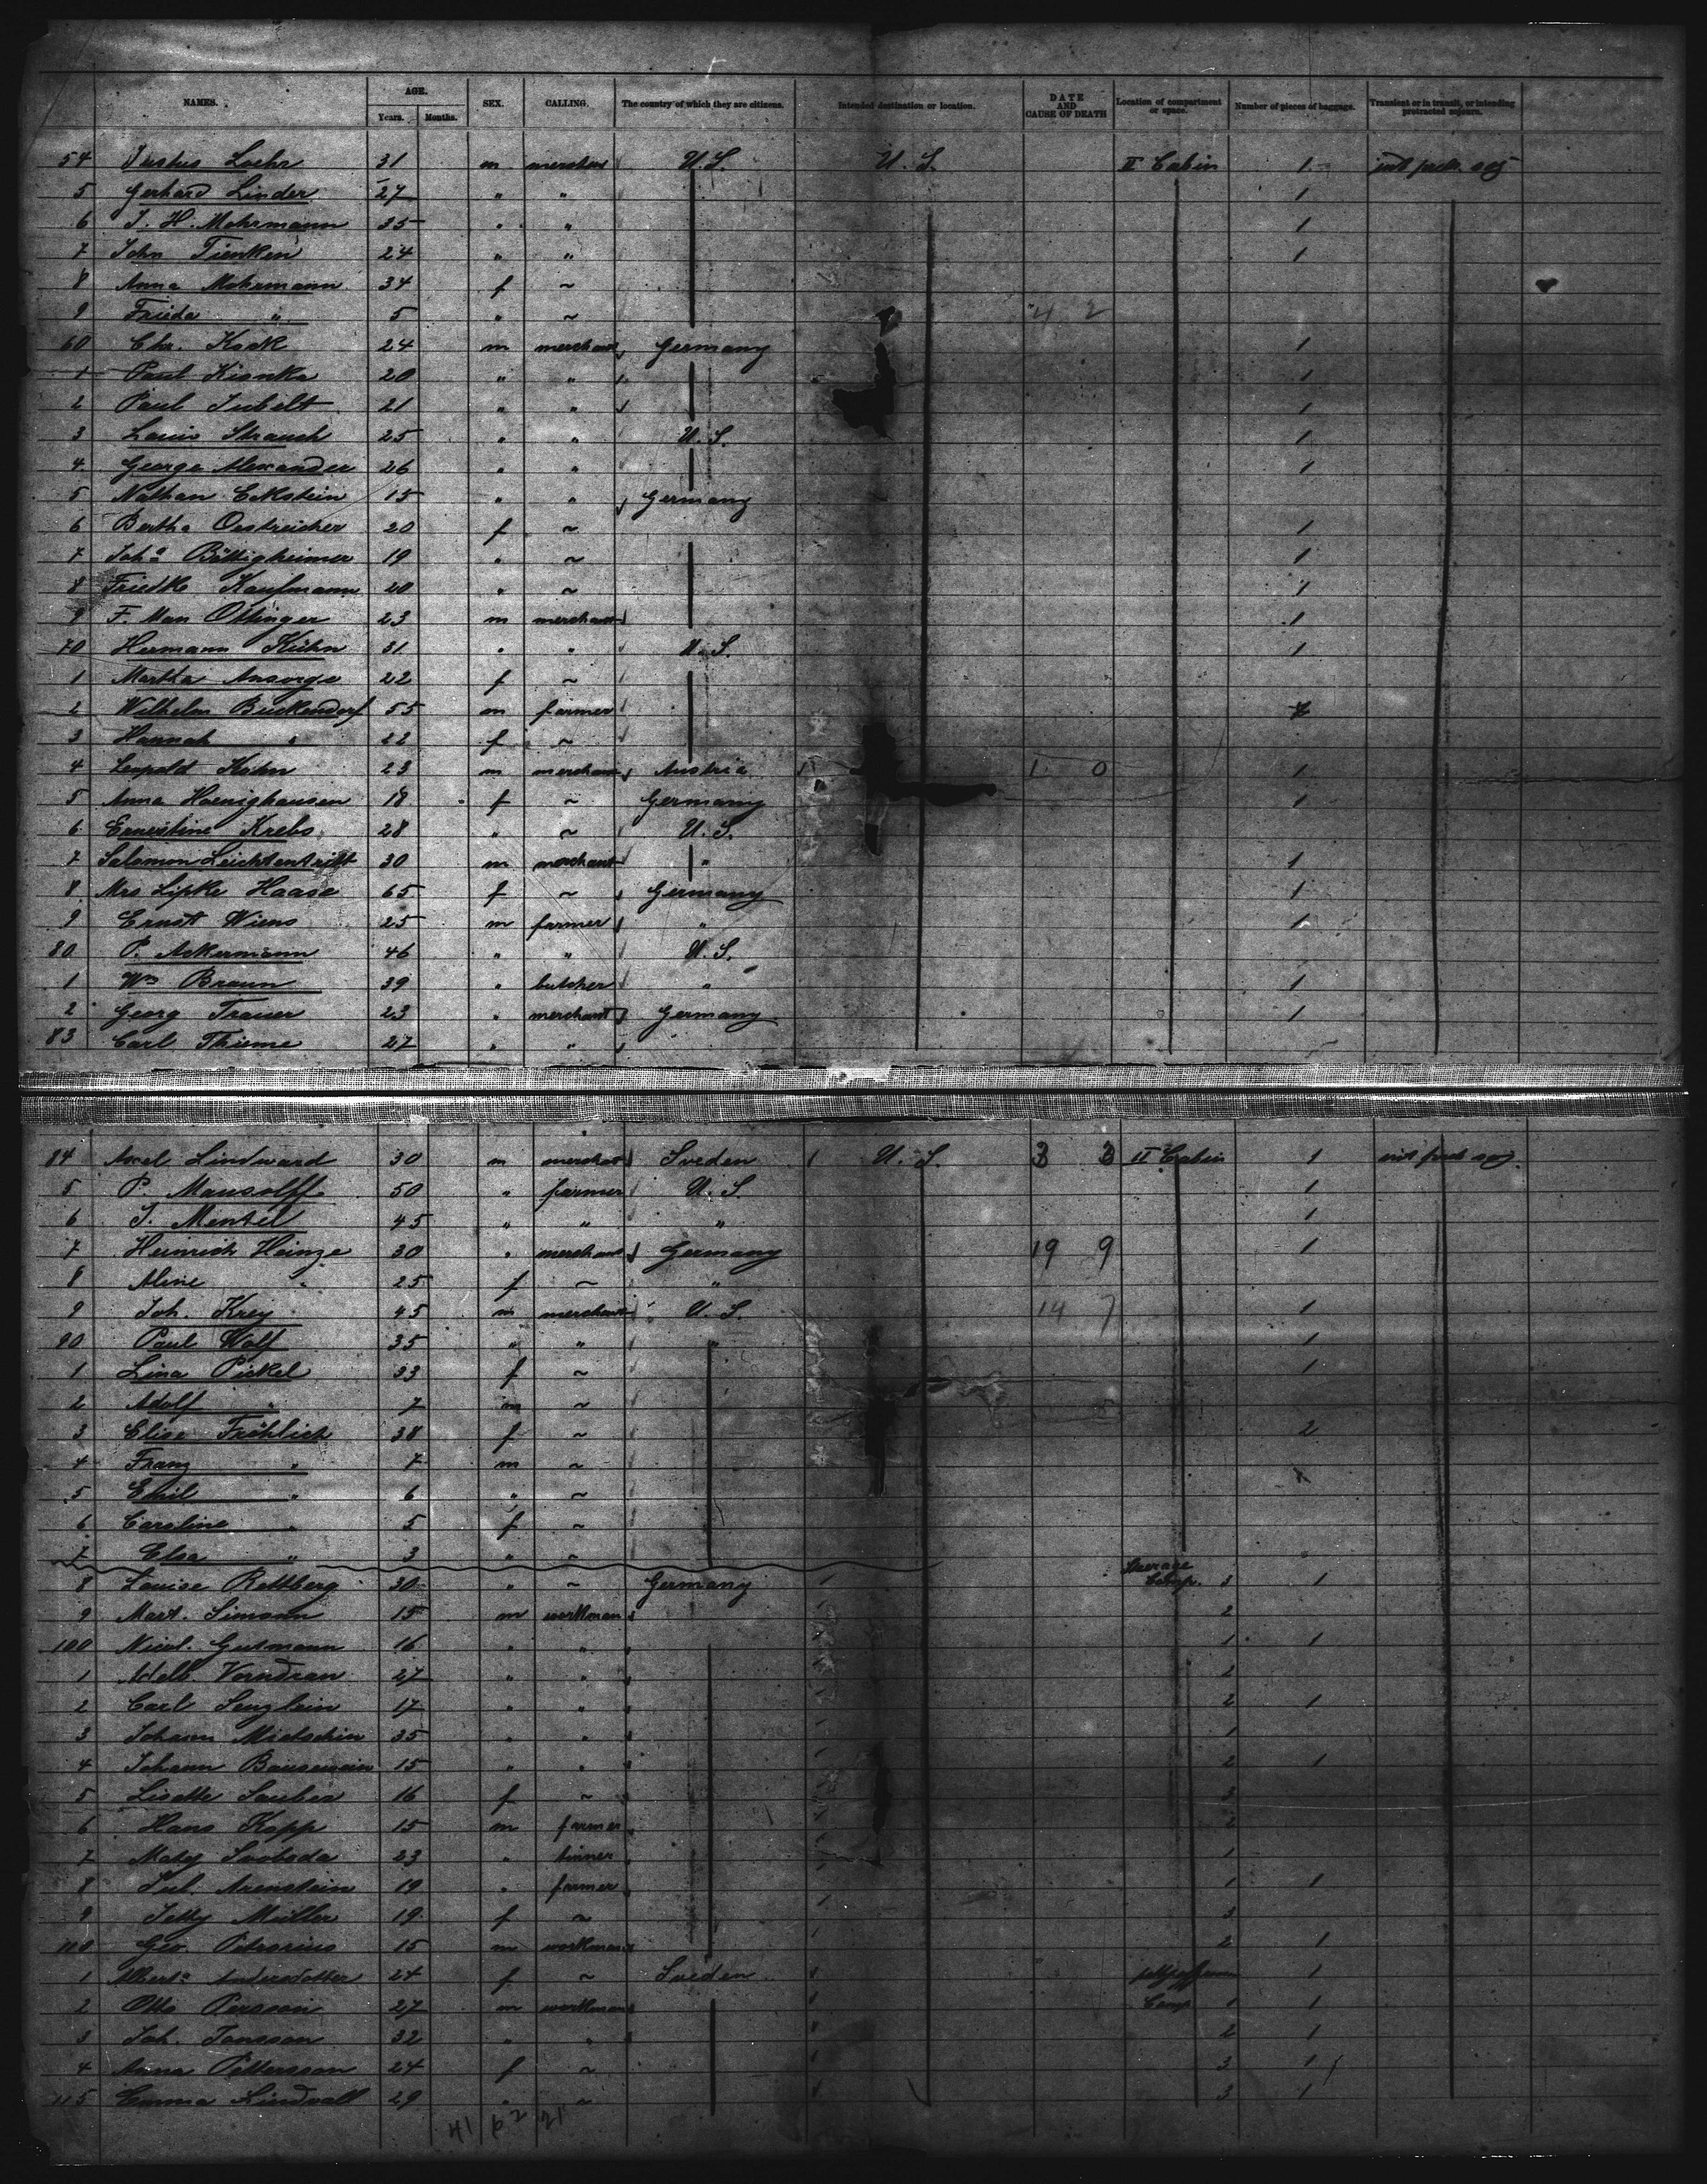 NAMES. AGE. SEX. CALLING. The country of which they are citizens. Intended destination or location. DATE AND CAUSE OF DEATH Location of compartment or space. Number of pieces of baggage. Transient or in transit, or intending protracted sojourn.
Years. Months.
54 Justus Loehr 31 m merchant U.S. U.S. II Cabin 1
5 Gerhard Linder 27 " " 1
6 J. H. Mohrmann 35 " " 1
7 John Tienken 24 " " 1
8 Anna Mohrmann 34 f ~
9 Frieda " 5 " ~ 4 2
60 Chr. Kock 24 m merchant Germany 1
1 Paul Kionka 20 " " 1
2 Paul Jubelt 21 " " 1
3 Louis Strauch 25 " " U.S. 1
4 George Alexander 26 " " 1
5 Nathan Eckstein 15 " " Germany
6 Bertha Oestreicher 20 f ~ 1
7 Joha Böttigheimer 19 " ~ 1
8 Friedke Kaufmann 20 " ~ 1
9 F. Man Ottinger 23 m merchant 1
70 Hermann Kühn 31 " " U.S. 1
1 Martha Ansorge 22 f ~
2 Wilhelm Buckendorf 55 m farmer
3 Hannah " 22 f ~
4 Leopold Kohn 23 m merchant Austria 1 0 1
5 Anna Hoenighausen 18 f ~ Germany 1
6 Ernestine Krebs 28 " ~ U.S.
7 Salomon Leichtentritt 30 m merchant " 1
8 Mrs Lipke Haase 65 f ~ Germany 1
9 Ernst Wiens 25 m farmer " 1
80 P. Ackermann 46 " " U.S.
1 Wm Braun 39 " butcher " 1
2 Georg Trauer 23 " merchant Germany 1
83 Carl Thieme 27 " "
84 Axel Lindward 30 m merchant Sveden U.S. 3 3 II Cabin 1
5 P. Mansolff 50 " farmer U.S. 1
6 J. Mentel 45 " " " 1
7 Heinrich Heinze 30 " merchant Germany 19 9 1
8 Aline " 25 f ~ "
9 Joh. Krey 45 m merchant U.S. 14 7 1
90 Paul Wolf 35 " " " 1
1 Lina Pickel 33 f ~ 1
2 Adolf " 7 m ~
3 Elise Fröhlich 38 f ~ 2
4 Franz " 7 m ~
5 Emil " 6 " ~
6 Caroline " 5 f ~
7 Elsa " 3 " ~
8 Louise Rettberg 30 " ~ Germany Steerage Comp. 3 1
9 Mart. Simonn 15 m workman 2
100 Nicol. Gutmann 16 " " 1 1
1 Adelb. Vorndran 27 " " 2
2 Carl Senzlein 17 " " 2 1
3 Johann Mietschin 35 " " 1
4 Johann Bausewein 15 " " 2 1
5 Lisette Sauber 16 f ~ 3
6 Hans Kopp 15 m farmer 2
7 Matej Svoboda 23 " tinner 1
8 Jul. Arenstein 19 " farmer 1 1
9 Jetty Müller 19 f ~ 3
110 Geo. Petrorius 15 m workman 2 1
1 Alberta Andersdotter 24 f ~ Sveden 1
2 Otto Persson 27 m workman Comp 1 1
3 Joh. Jansson 32 " " 2 1
4 Anna Pettersson 24 f ~ 3 1
115 Emma Lindvall 29 " " 3 1
41 62 21